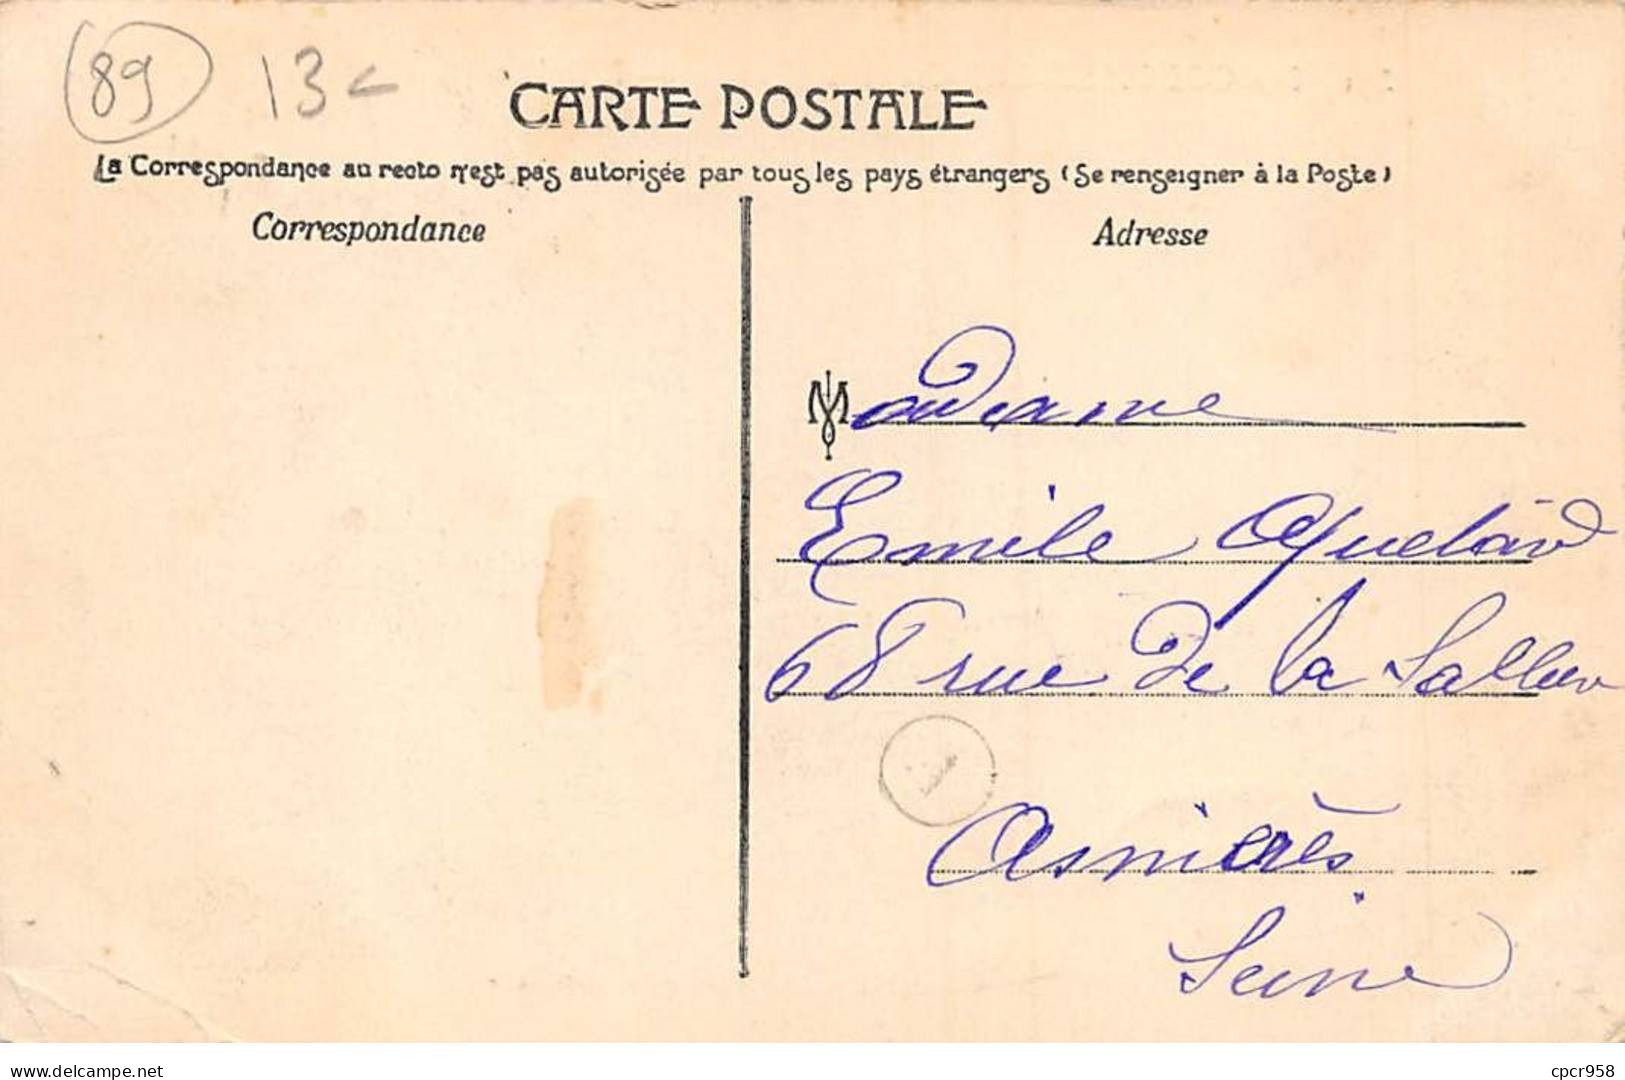 89 13
CARTE POSTALE
La Correspondance au recto n'est pas autorisée par tous les pays étrangers (Se renseigner à la Poste)
Correspondance
Adresse
Madame
Emile
68 rue de la
Asnières
Seine
delcampe.net
cpcr958